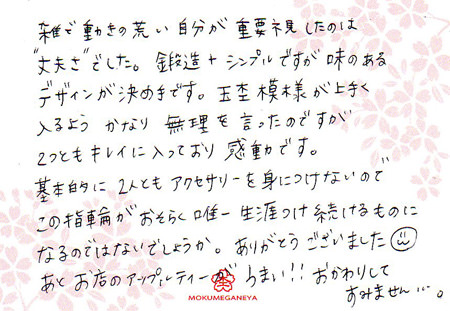 雑で動きの荒い自分が重要視したのは
"丈夫さ"でした。鍛造+シンプルですが味のある
デザインが決め手です。玉杢模様が上手く
入るようかなり無理を言ったのですが
2つともキレイに入っており感動です。
基本的に2人ともアクセサリーを身につけないので
この指輪がおそらく唯一生涯つけ続けるものに
なるのではないでしょうか。ありがとうございました
あとお店のアップルティーがうまい!!おかわりして
すみません…。
MOKUMEGANEYA